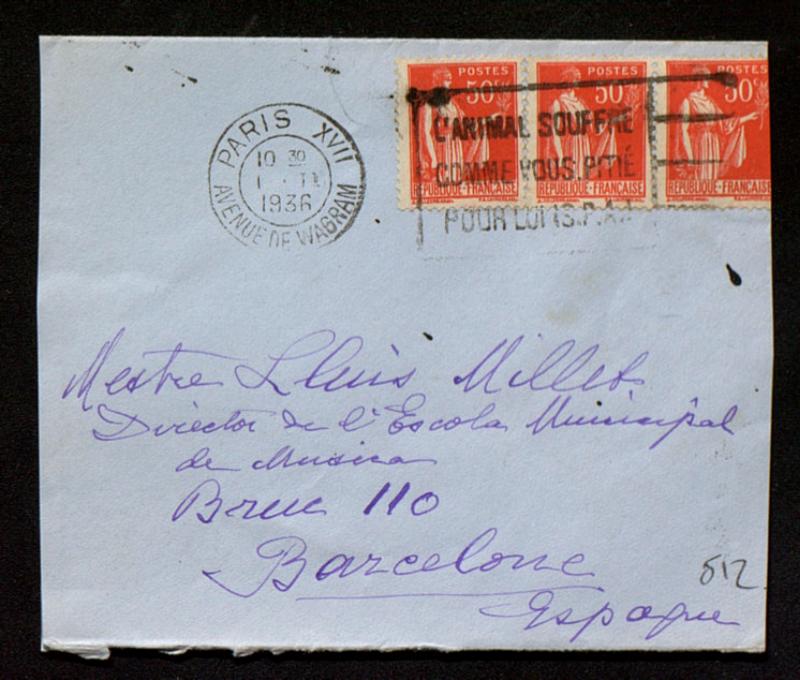 POSTES POSTES POSTES
50c 50c 50c
RÉPUBLIQUE-FRANÇAISE RÉPUBLIQUE-FRANÇAISE RÉPUBLIQUE FRANÇAISE
L'ANIMAL SOUFFRE
COMME VOUS.PITIÉ
POUR LUI
PARIS XVII
10 30
1936
AVENUE DE WAGRAM
Mestre Lluis Millet
Director de l'Escola Municipal
de Musica
Bruc 110
Barcelone
Espagne
512